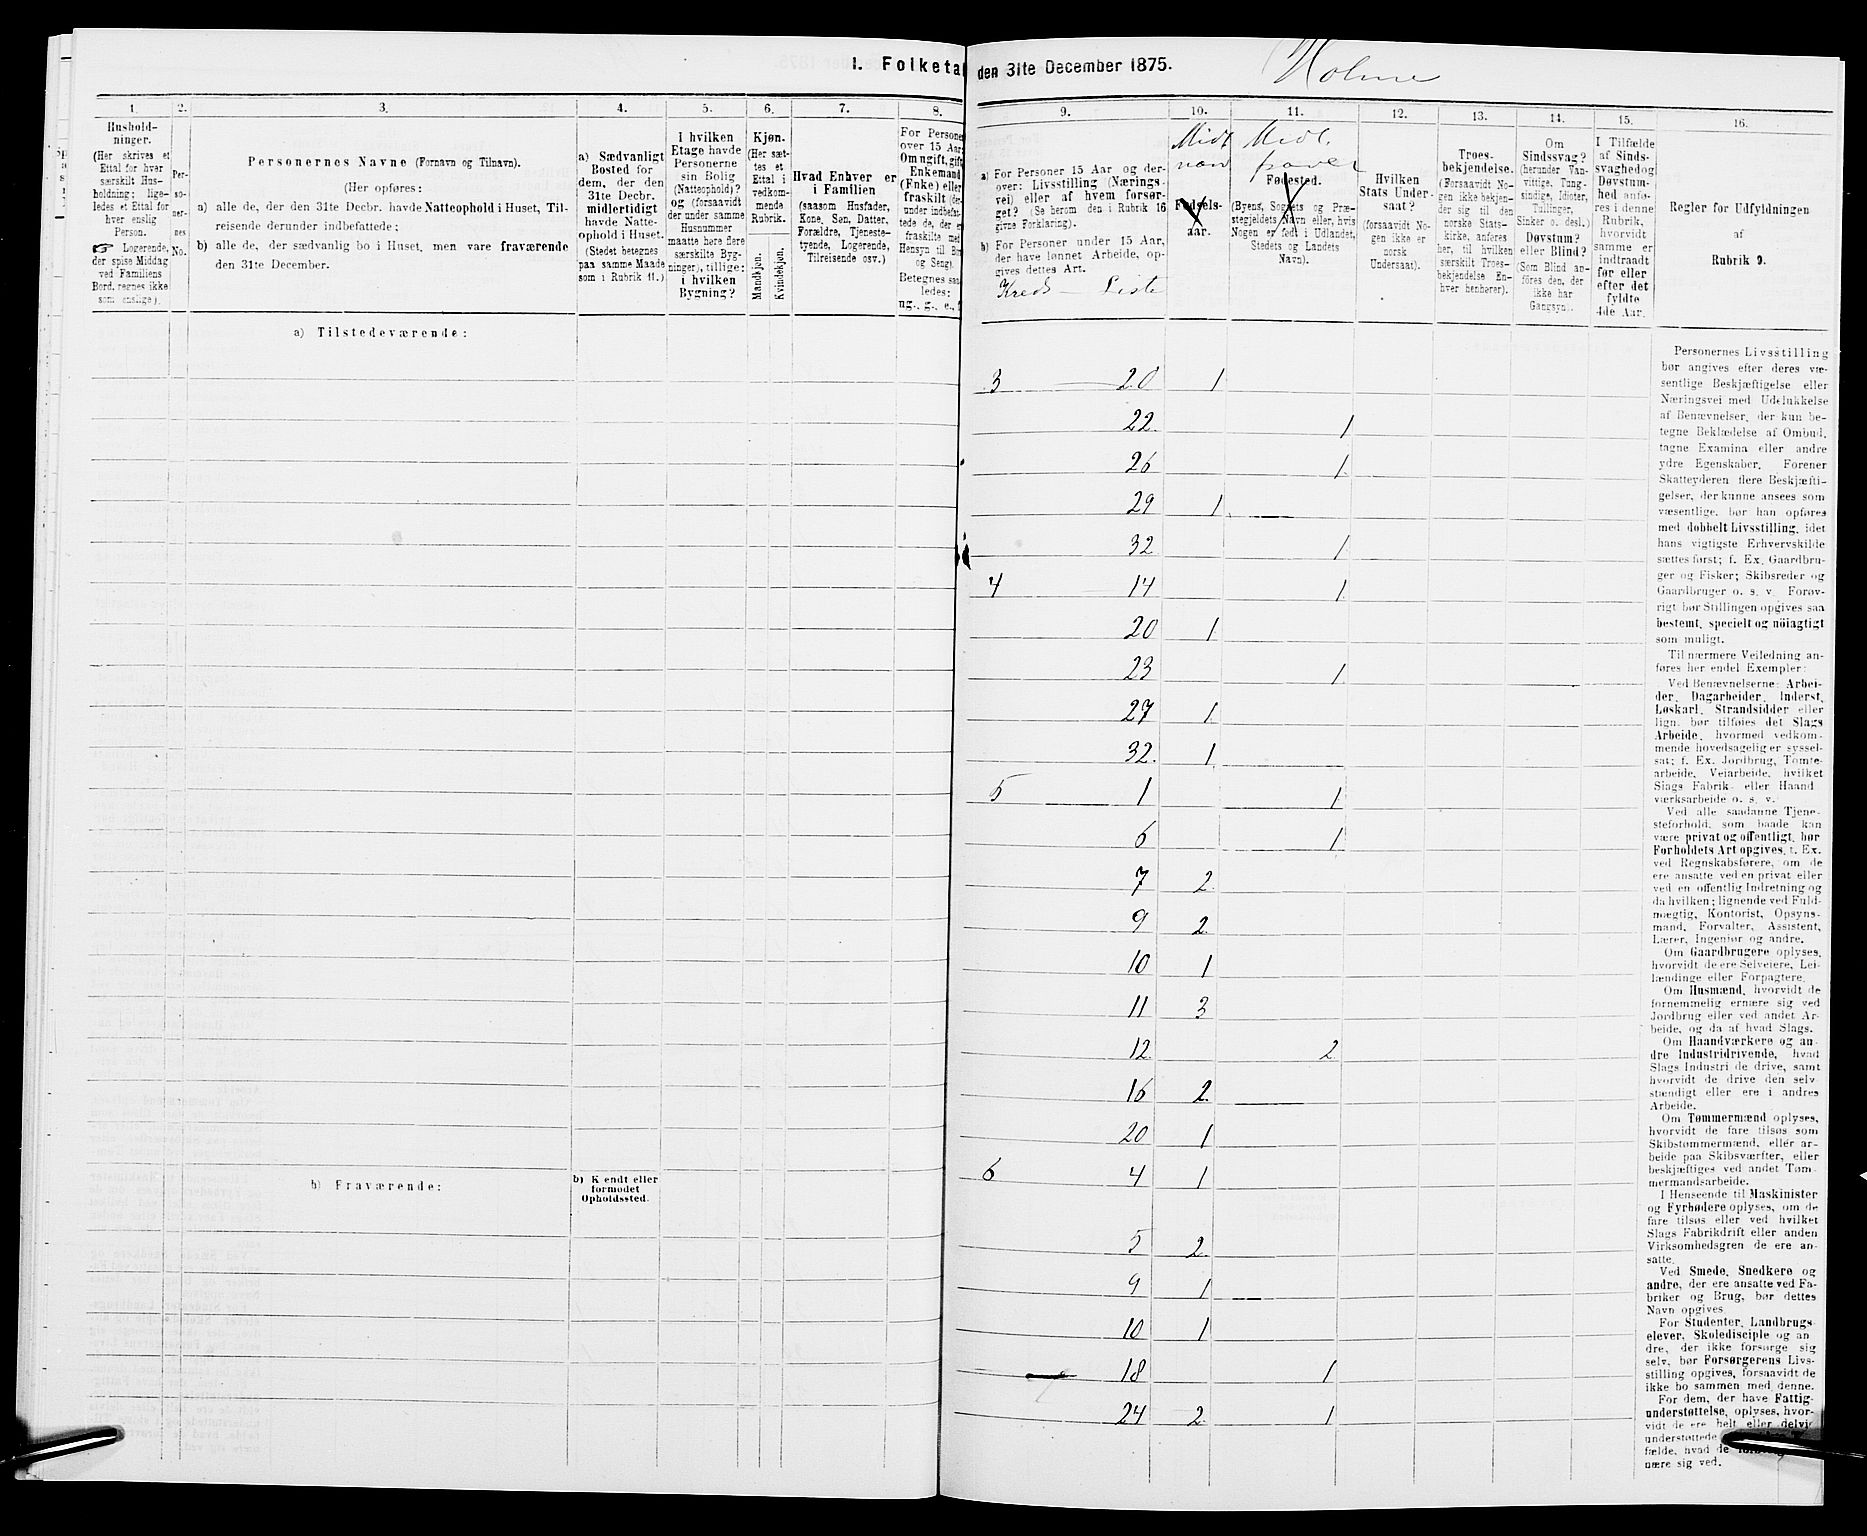 I. Folketal den 31te December 1875.
Holme
1.
Hushold-
ninger.
(Her skrives et
Ettal for hver
særskilt Hus-
holdning; lige-
ledes et Ettal for
hver enslig
Person.
☞ Logerende,
der spise Middag
ved Familiens
Bord, regnes ikke
som enslige).
2.
Per-
so-
ner-
nes
No.
3.
Personernes Navne (Fornavn og Tilnavn).
(Her opføres:
a) alle de, der den 31te Decbr. havde Natteophold i Huset, Til-
reisende derunder indbefattede;
b) alle de, der sædvanlig bo i Huset, men vare fraværende
den 31te December.
4.
a) Sædvanligt
Bosted for
dem, der den
31te Decbr.
midlertidigt
havde Natte-
ophold i Huset.
(Stedet betegnes
paa samme Maade
som i Rubrik 11.)
5.
I hvilken
Etage havde
Personerne
sin Bolig
(Natteophold)?
og (forsaavidt
der under samme
Husnummer
maatte høre flere
særskilte Byg-
ninger), tillige:
i hvilken
Bygning?
6.
Kjøn.
(Her sæt-
tes et
Ettal i
vedkom-
mende
Rubrik.
Mandkjøn.
Kvindekjøn.
7.
Hvad Enhver er
i Familien
(saasom Husfader,
Kone, Søn, Datter,
Forældre, Tjeneste-
tyende, Logerende,
Tilreisende osv.)
8.
For Persone
over 15 Aar:
Om ugift, gift
Enkemand
(Enke) eller
fraskilt
Betegnes saa
ledes:
ug., g., e.,
9.
a) For Personer 15 Aar og der-
over: Livsstilling (Nærings-
vei) eller af hvem forsør-
get? (Se herom den i Rubrik 16
givne Forklaring).
b) For Personer under 15 Aar,
der have lønnet Arbeide, op-
gives dettes Art.
Kreds — Liste
10.
Midt
Fødsels-
aar.
11.
Midl.
fravær
Fødested.
(Byens, Sognets og Præ-
stegjeldets Navn eller, hvis
Nogen er født i Udlandet,
Stedets og Landets
Navn).
12.
Hvilken
Stats Under-
saat?
(forsaavidt No-
gen ikke er
norsk
Undersaat).
13.
Troes-
bekjendelse.
(Forsaavidt No-
gen ikke bekjen-
der sig til den
norske Stats-
kirke, anføres
her, til hvilken
særskilt Troes-
bekjendelse En-
hver henhører).
14.
Om
Sindssvag?
(herunder Van-
vittige, Tung-
sindige, Idioter,
Tullinger,
Sinker o. desl.)
Døvstum?
eller Blind?
(Som Blind an-
føres den, der
ikke har
Gangsyn).
15.
I Tilfælde
af Sinds-
svaghed og
Døvstum-
hed anfø-
res i denne
Rubrik,
hvorvidt
samme er
indtraadt
før eller
efter det
fyldte
4de Aar.
16.
Regler for Udfyldningen
af
Rubrik 9.
a) Tilstedeværende:
3 — 20 1
22. 1
26 1
29 1
32 1
4 14 1
20 1
23 1
27 1
32. 1
5 1 1
6 1
7 2
9 2
10 1
11 3
12 2
16 2
20 1
6 4 1
b) Fraværende:
b) Kjendt eller
formodet
Opholdssted.
5 2
9 1
10 1
18 1
24 2 1
Personernes Livsstilling
bør angives efter deres væ-
sentlige Beskjæftigelse eller
Næringsvei med Udelukkelse
af Benævnelser, der kun be-
tegne Beklædelse af Ombud,
tagne Examina eller andre
ydre Egenskaber. Forener
Skatteyderen flere Beskjæfti-
gelser, der kunne ansees som
væsentlige, bør han opføres
med dobbelt Livsstilling, idet
hans vigtigste Erhvervskilde
sættes først; f. Ex. Gaardbru-
ger og Fisker; Skibsreder og
Gaardbruger o. s. v. Forøv-
rigt bør Stillingen opgives saa
bestemt, specielt og nöiagtigt
som muligt.
Til nærmere Veiledning an-
føres her endel Exempler:
Ved Benævnelserne: Arbei-
der, Dagarbeider, Inderst,
Løskarl, Strandsidder eller
lign. bør tilføies det Slags
Arbeide, hvormed vedkom-
mende hovedsagelig er syssel-
sat; f. Ex. Jordbrug, Tomte-
arbeide, Veiarbeide, hvilket
Slags Fabrik- eller Haand
værksarbeide o. s. v.
Ved alle saadanne Tjene-
steforhold, som baade kan
være privat og offentligt, bør
Forholdets Art opgives, f. Ex.
ved Regnskabsførere, om de
ere ansatte ved en privat eller
ved en offentlig Indretning og
da hvilken; lignende ved Fuld-
mægtig, Kontorist, Opsyns-
mand, Forvalter, Assistent,
Lærer, Ingeniør og andre.
Om Gaardbrugere oplyses,
hvorvidt de ere Selveiere, Lei-
lændinge eller Forpagtere.
Om Husmænd, hvorvidt de
fornemmelig ernære sig ved
Jordbrug eller ved andet Ar-
beide, og da af hvad Slags.
Om Haandværkere og an-
dre Industridrivende, hvad
Slags Industri de drive, samt
hvorvidt de drive den selv-
stændigt eller ere i andres
Arbeide.
Om Tømmermænd oplyses,
hvorvidt de fare tilsøs som
Skibstømmermænd, eller ar-
beide paa Skibsværfter, eller
beskjæftiges ved andet Tøm-
mermandsarbeide.
I Henseende til Maskinister
og Fyrbødere oplyses, om de
fare tilsøs eller ved hvilket
Slags Fabrikdrift eller anden
Virksomhedsgren de ere an-
satte.
Ved Smede, Snedkere og
andre, der ere ansatte ved Fa-
briker og Brug, bør dettes
Navn opgives.
For Studenter, Landbrugs-
elever, Skoledisciple og an
dre, der ikke forsørge sig
selv, bør Forsørgerens Livs-
stilling opgives, forsaavidt de
ikke bo sammen med denne.
For dem, der have Fattig-
understøttelse, oplyses, hvor-
vidt de ere helt eller delvis
understøttede
fælde, hvad de
nære sig ved.